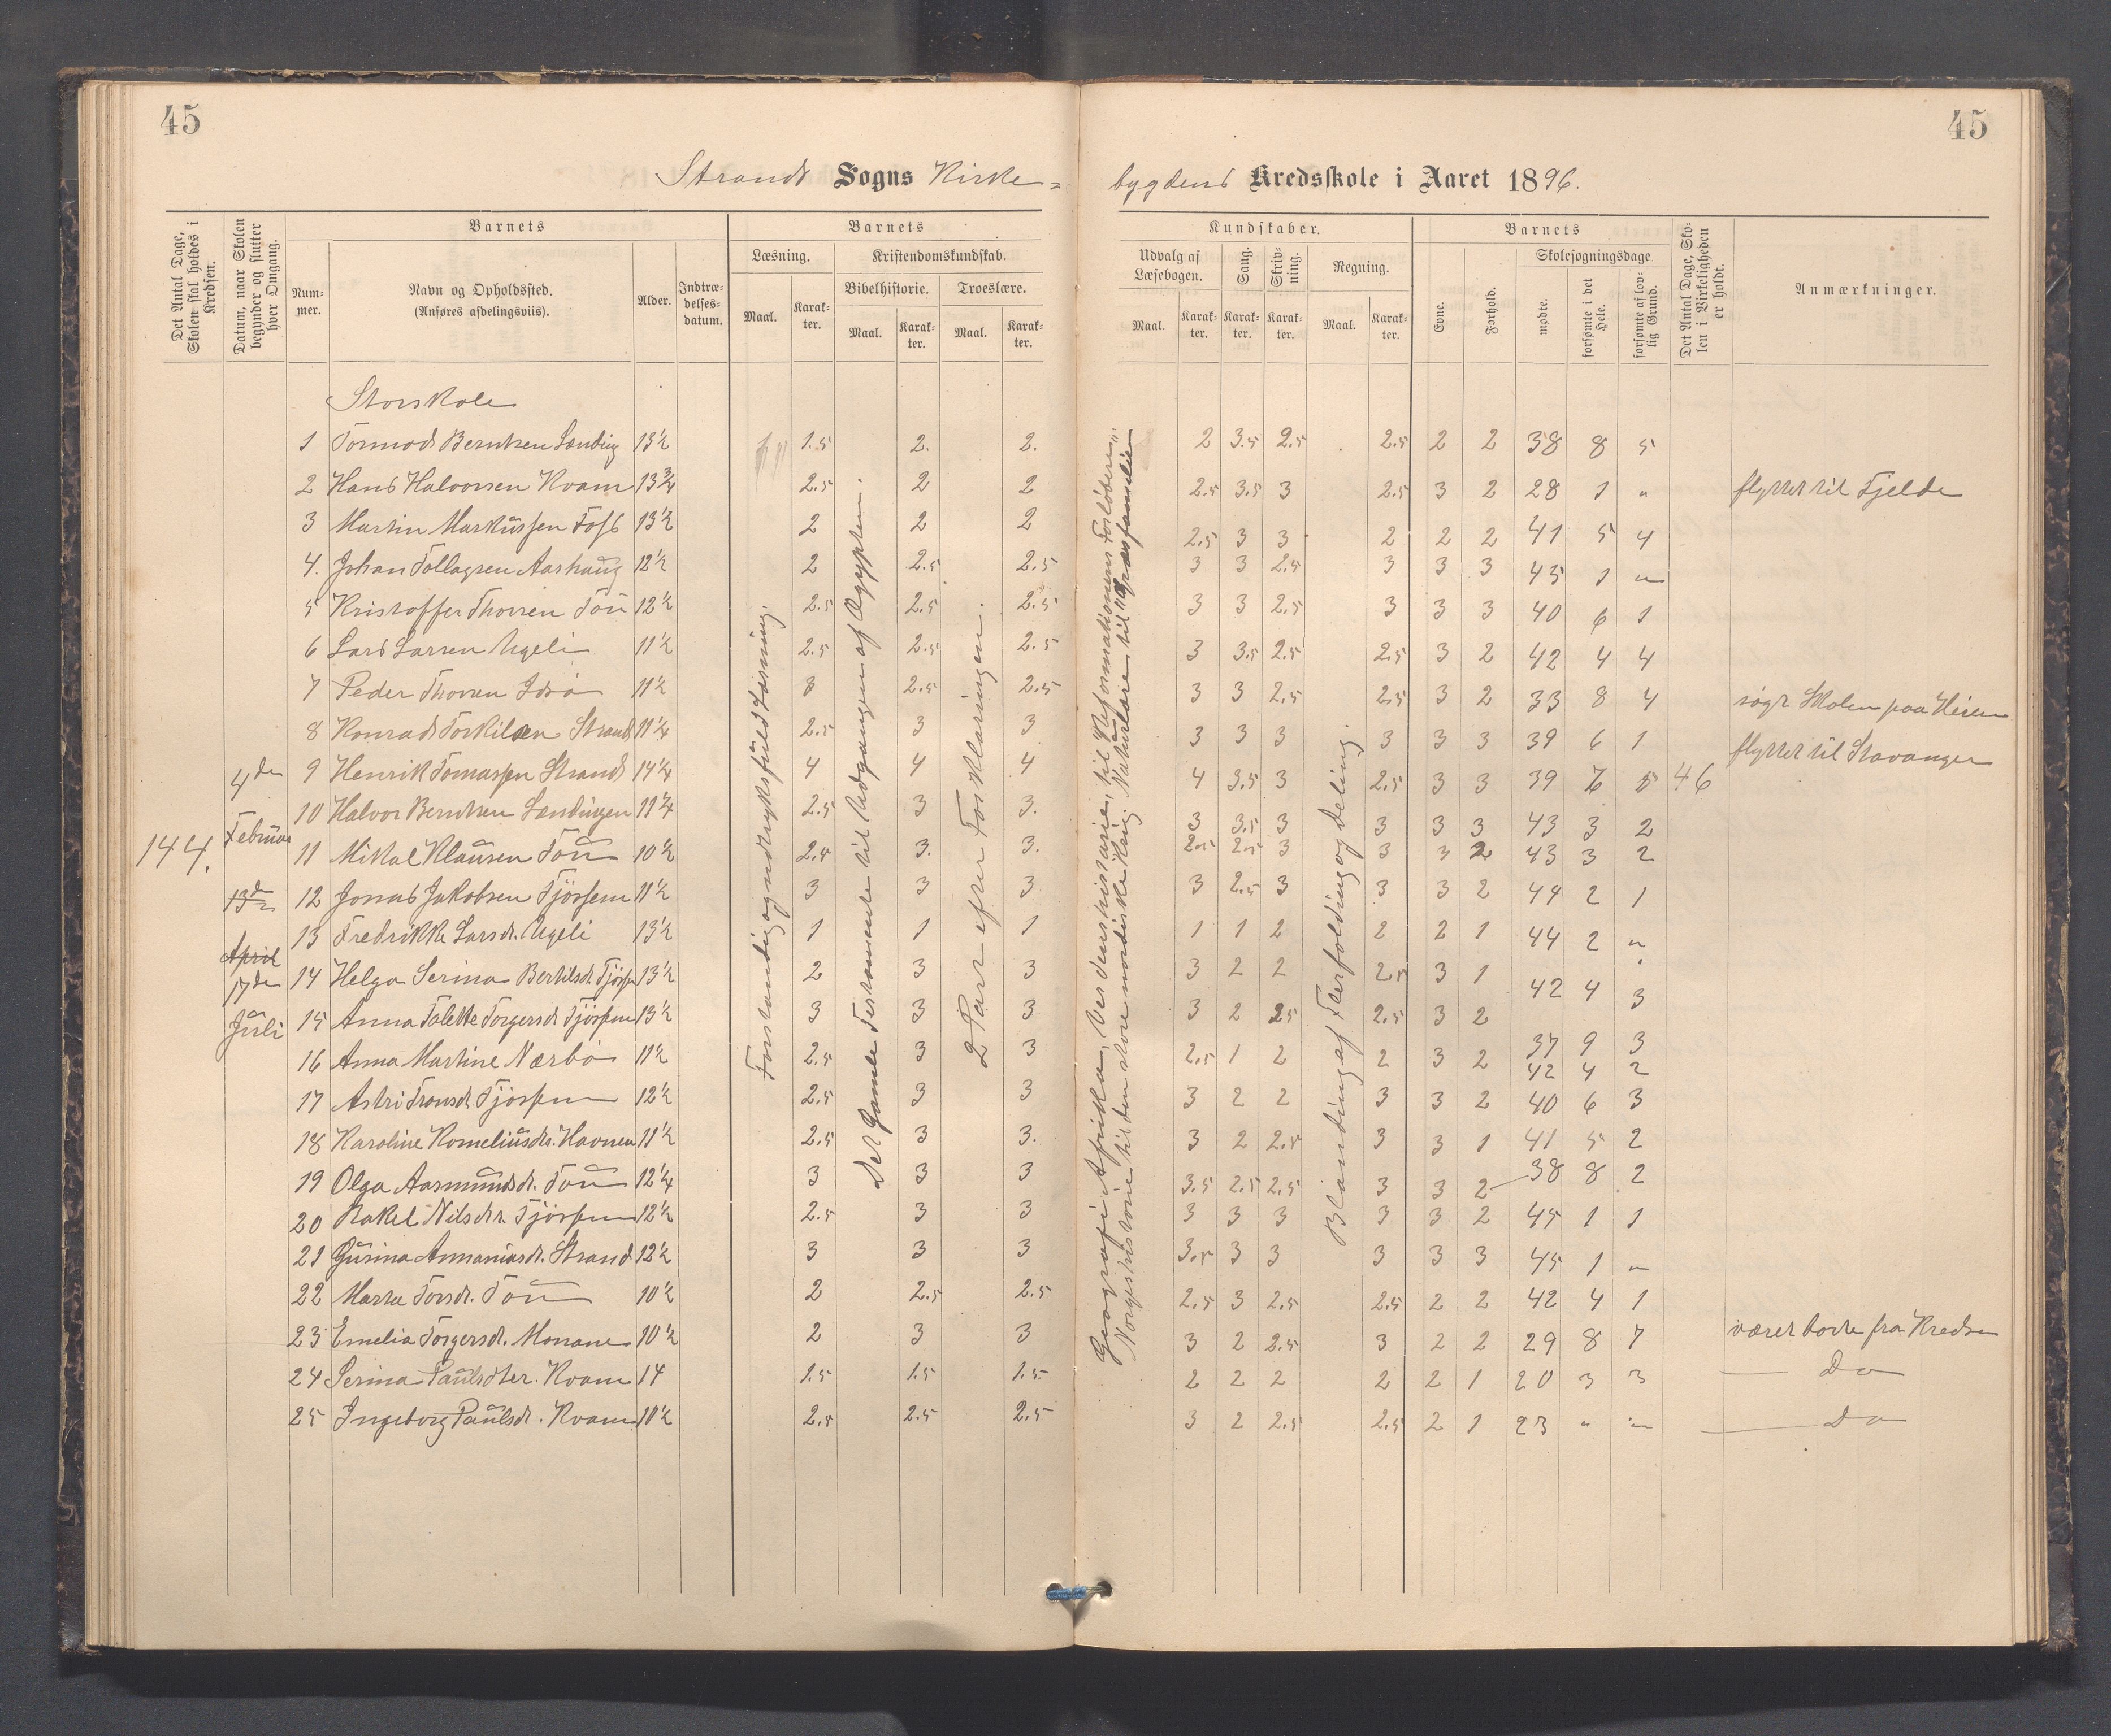 45
45
Strands Sogns Kirke=
bygdens Kredsskole i Aaret 1896.
Det Antal Dage, Skolen skal holdes i Kredsen.
Datum, naar Skolen begynder og slutter hver Omgang.
Barnets
Num-mer.
Navn og Opholdssted. (Anføres afdelingsviis).
Alder.
Indtræ-delses-datum.
Barnets
Læsning.
Maal.
Karak-ter.
Kristendomskundskab.
Bibelhistorie.
Maal.
Karak-ter.
Troeslære.
Maal.
Karak-ter.
Kundskaber.
Udvalg af Læsebogen.
Maal.
Karak-ter.
Sang.
Karak-ter.
Skriv-ning.
Karak-ter.
Regning.
Maal.
Karak-ter.
Barnets
Evne.
Forhold.
Skolesøgningsdage
mødte.
forsømte i det Hele.
forsømte af lov-lig Grund.
Det Antal Dage, Sko-len i Virkeligheden er holdt.
Anmærkninger.
144.
4de
Februar
13de
April
17de
Juli
Storskole
1 Tormod Berntsen Lænding 13½ 1.5 2. 2. 2 3.5 2.5 2.5 2 2 38 8 5
2 Hans Halvorsen Kvam 13¾ 2.5 2 2 2.5 3.5 3 2.5 3 2 28 1 " flyttet til Fjelde
3 Martin Markussen Foss 13½ 2 2 2 2.5 3 3 2 2 2 41 5 4
4. Johan Tollagsen Aarhaug 12½ 2 2.5 2.5 3 3 2.5 3 3 3 45 1 "
5 Kristoffer Thorsen Tou 12½ 2.5 2.5 2.5 3 3 2.5 3 3 3 40 6 1
6 Lars Larsen Ugeli 11½ 2.5 2.5 2.5 3 3.5 2.5 2.5 3 2 42 4 4
7 Peder Thorsen Idsø 11½ 3 2.5 2.5 3 3 2.5 2.5 3 2 33 8 4 søgt Skolen paa Heien
8 Konrad Torkilsen Strand 11¼ 2.5 3 3 3 3 3 3 3 3 39 6 1
9 Henrik Tomassen Strand 14¼ 4 4 4 4 3.5 3 2.5 3 3 39 7 5 46 flyttet til Stavanger
10 Halvor Berntsen Lændingen 11¼ 2.5 3 3. 3 3.5 3 3 3 3 43 3 2
11 Mikal Klausen Tou 10½ 2.5 3. 3. 2.5 2.5 3 3 3 2 43 3 2
12 Jonas Jakobsen Tjössem 11½ 3 3 3 3 2.5 3 3 3 2 44 2 1
13 Fredrikke Larsdr. Ugeli 13½ 1 1 1 1 1 2 2 2 1 44 2 "
14 Helga Serina Bertilsdr. Tjössem 13½ 2 3 3 3 2 2 2.5 3 1 42 4 3
15 Anna Tolette Torgersdr. Tjössem 13½ 3 3 3 3 2 2.5 2.5 3 2 37 9 3
16 Anna Martine Nærbø 11½ 2.5 3 3 2.5 1 2 2 3 2 42 4 2
17 Astri Tronsdr. Tjössem 12½ 2.5 3 3 3 2 2 3 3 2 40 6 3
18 Karoline Korneliusdtr. Havnen 11½ 2.5 3 3. 3 2 2.5 3 3 1 41 5 2
19 Olga Aasmundsdr. Tou 12¼ 3 3 3 3.5 2.5 2.5 3 3 2 38 8 2
20 Rakel Nilsdtr. Tjössem 12½ 2.5 3 3 3 3 3 3 3 2 45 1 1
21 Gusina Annaniasdr. Strand 12½ 3 3 3 3.5 3 3 3 3 3 45 1 "
22 Marta Torsdr. Tou 10½ 2 2.5 2.5 2.5 3 2.5 2.5 2 2 42 4 1
23 Emelia Torgersdr. Monane 10½ 2 3 3 3 2 2.5 3 2 2 29 8 7 været borte fra Kredsen
24 Serina Paulsdter. Kvam 14 1.5 1.5 1.5 2 2 2 2 2 1 20 3 3 — Do
25 Ingeborg Paulsdr. Kvam 10½ 2.5 2.5 2.5 3 2 2.5 2.5 2 1 23 " " — Do
Forstandig og udtryksfuld Læsning.
Det Gamle Testamente til Udgangen af Ægypten.
2 Part efter Forklaringen.
Geografi: Afrika, Verdenshistorie, til "Reformationens Forløbere".
Norgeshistorie til den store nordiske Krig. Naturlære til "Græsfamilien
Blanding af Flerfolding og Deling